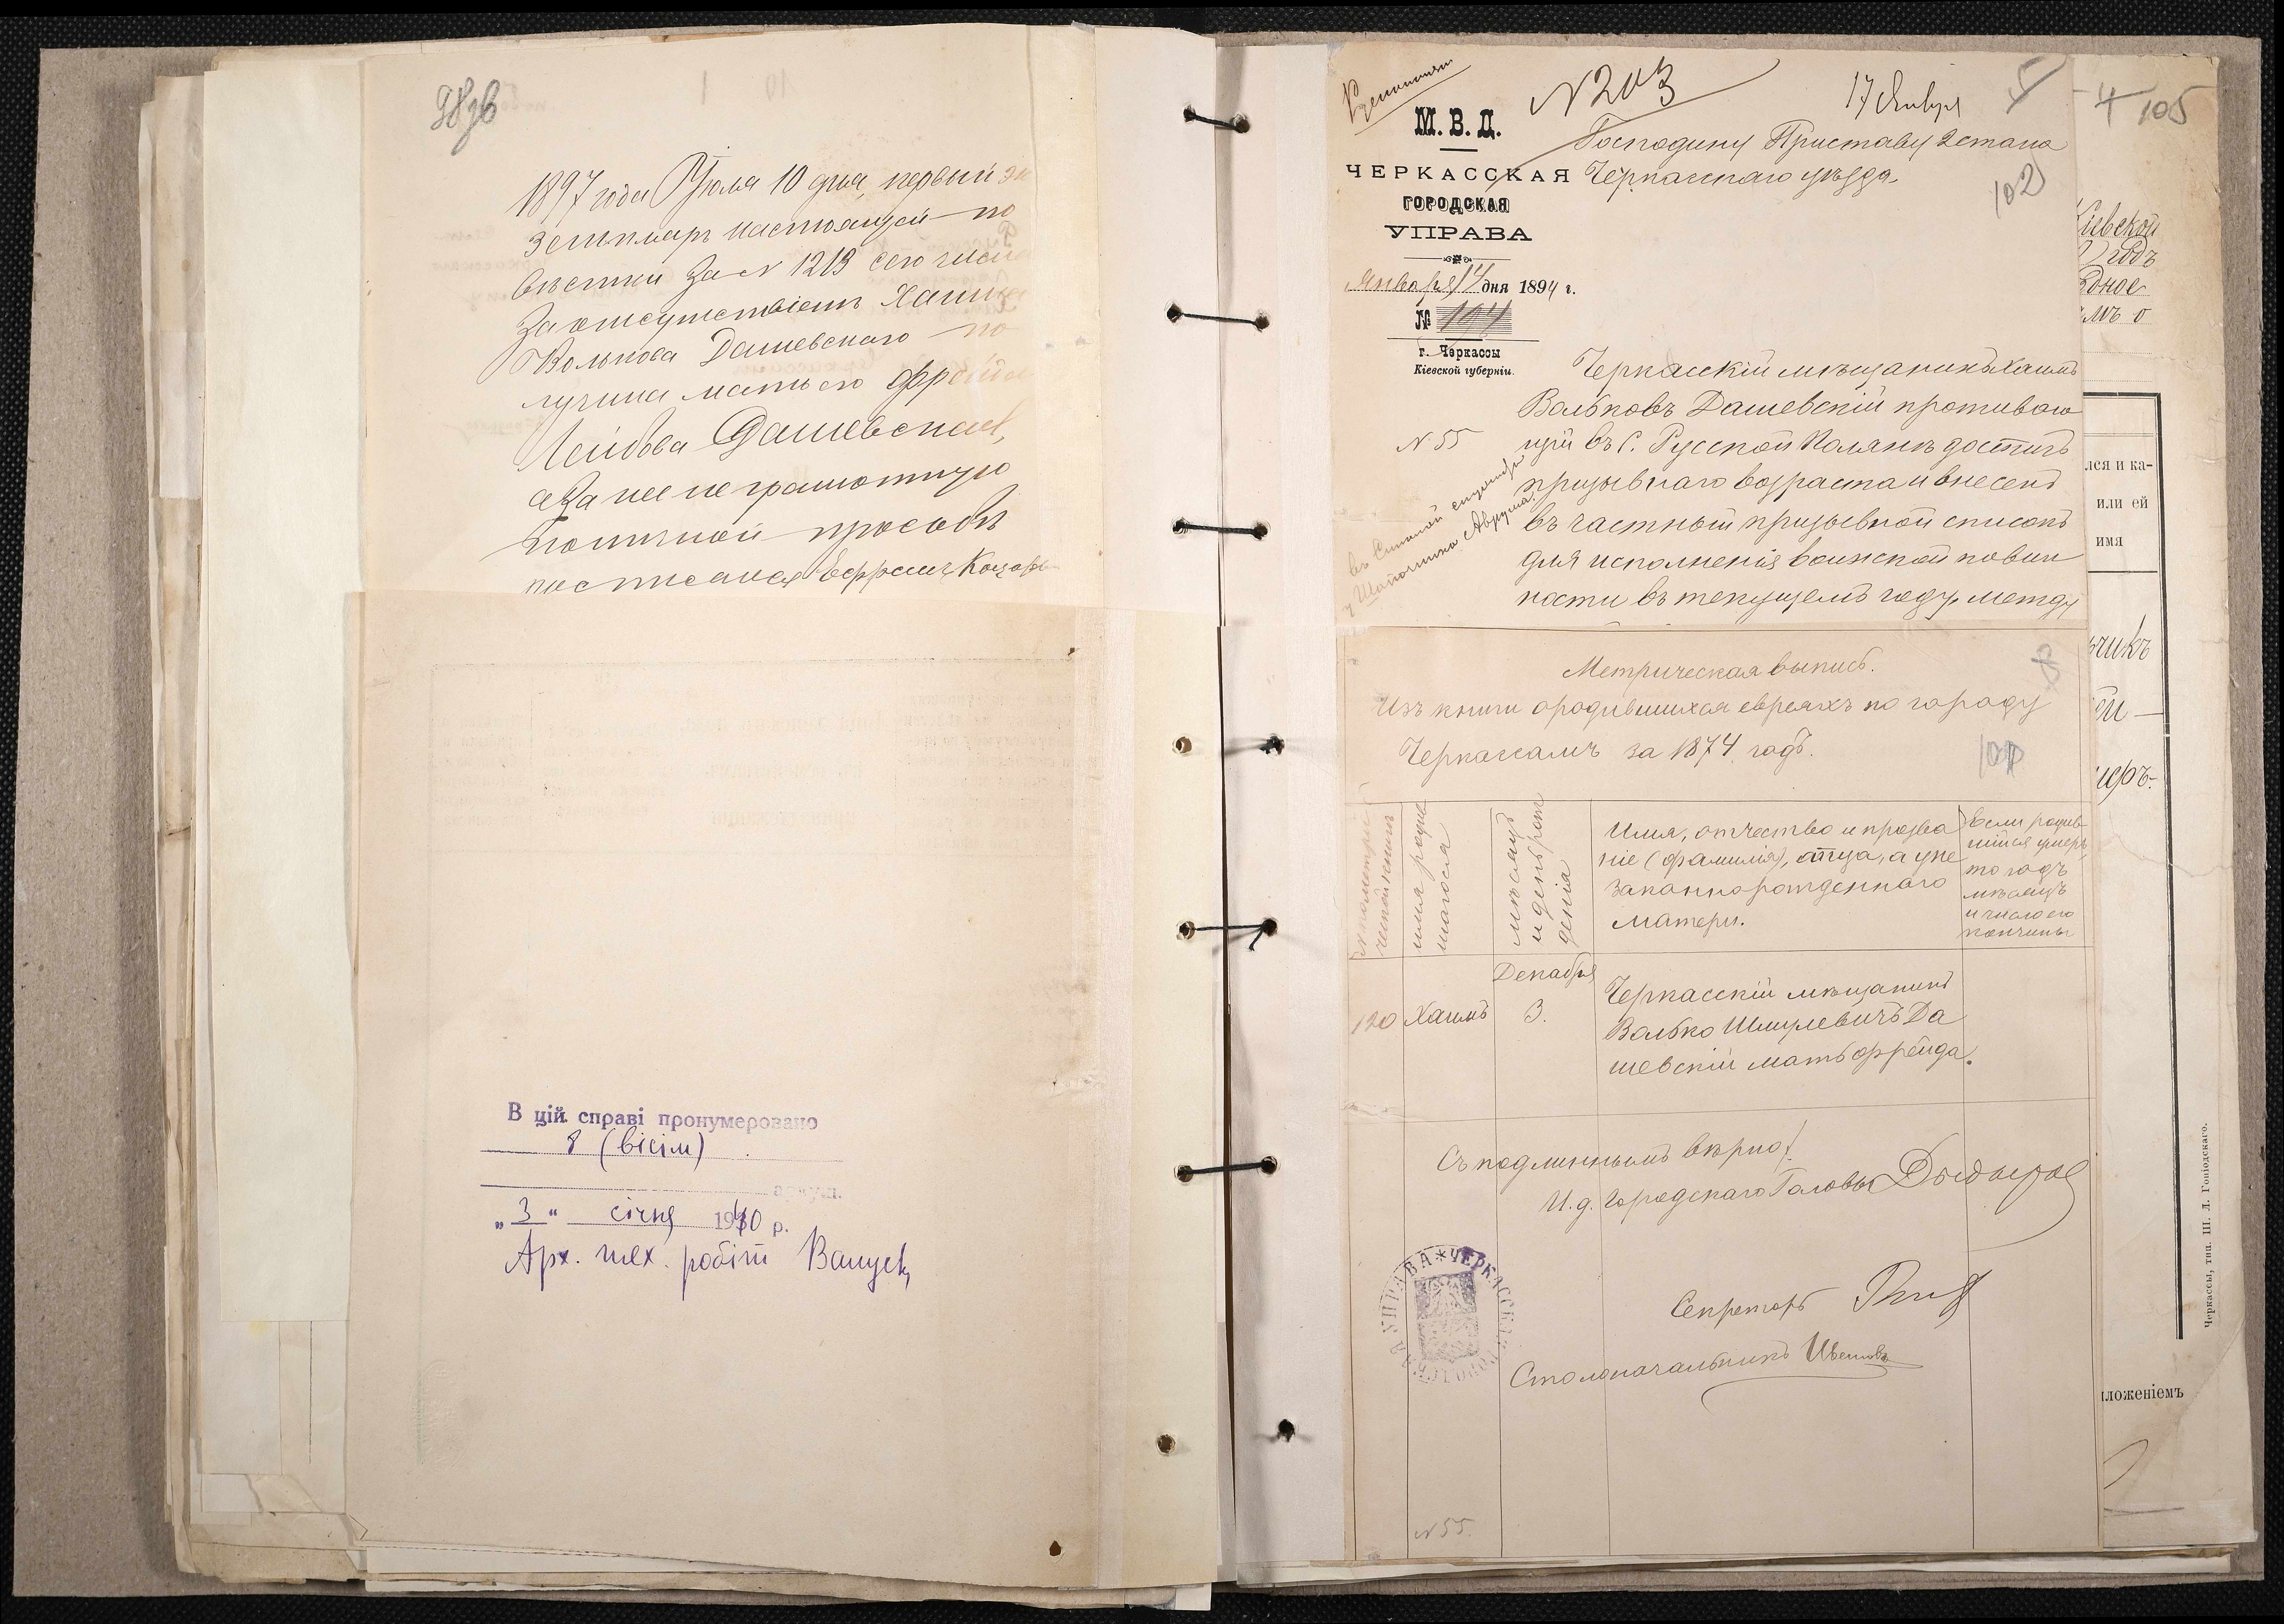 98 зв
1897 года Юля 10 дня, первый эк
земпляръ настоящей по
вестки за N 1213 сего числа
За отсутствіемъ Хаима
Волькова Дашевскаго по
лучила мать его Фрейда
Лейбова Дашевская,
а за нее не грамотную
по личной просьбѣ
расписался Ефраимъ
В цій справі пронумеровано
8 (вісім)
аркуш.
„3“ січня 1940 р.
Арх. тех. робіт
N 203
17 Января
5
М. В. Д.
ЧЕРКАССКАЯ
ГОРОДСКАЯ
УПРАВА
Января 14 дня 1894 г.
№ 104
г. Черкассы
Кіевской губерніи.
Господину Приставу 2 стана
Черкасскаго уѣзда
102
Черкасскій мѣщанинъ Хаимъ
Вольковъ Дашевскій проживаю
N 55
щій въ с. Русской Полянѣ достигъ
призывнаго возраста и внесенъ
въ частный призывной списокъ
для исполненія воинской повин
ности въ текущемъ году, между
Метрическая выпись.
Изъ книги о родившихся евреяхъ по городу
Черкассамъ за 1874 годъ.
имя родив
шагося
мѣсяцъ
и день рож
денія
Имя, отчество и прозва
ніе (фамилія), отца, а у не
законнорожденнаго
матери.
Если родив
шійся умеръ,
то годъ
мѣсяцъ
и число его
кончины
120
Хаимъ
Декабря
3.
Черкасскій мѣщанинъ
Волько Шмулевичъ Да
шевскій мать Фрейда.
Съ подлиннымъ вѣрно!
И. д. Городскаго Головы
Секретарь
Столоначальникъ
ЧЕРКАССКАЯ ГОРОДСКАЯ УПРАВА
N 55.
4 105
Кіевской
годъ
лся и ка-
или ей
имя
чикъ
ложеніемъ
Черкассы, тип. Ш. Л. Гопіодскаго.